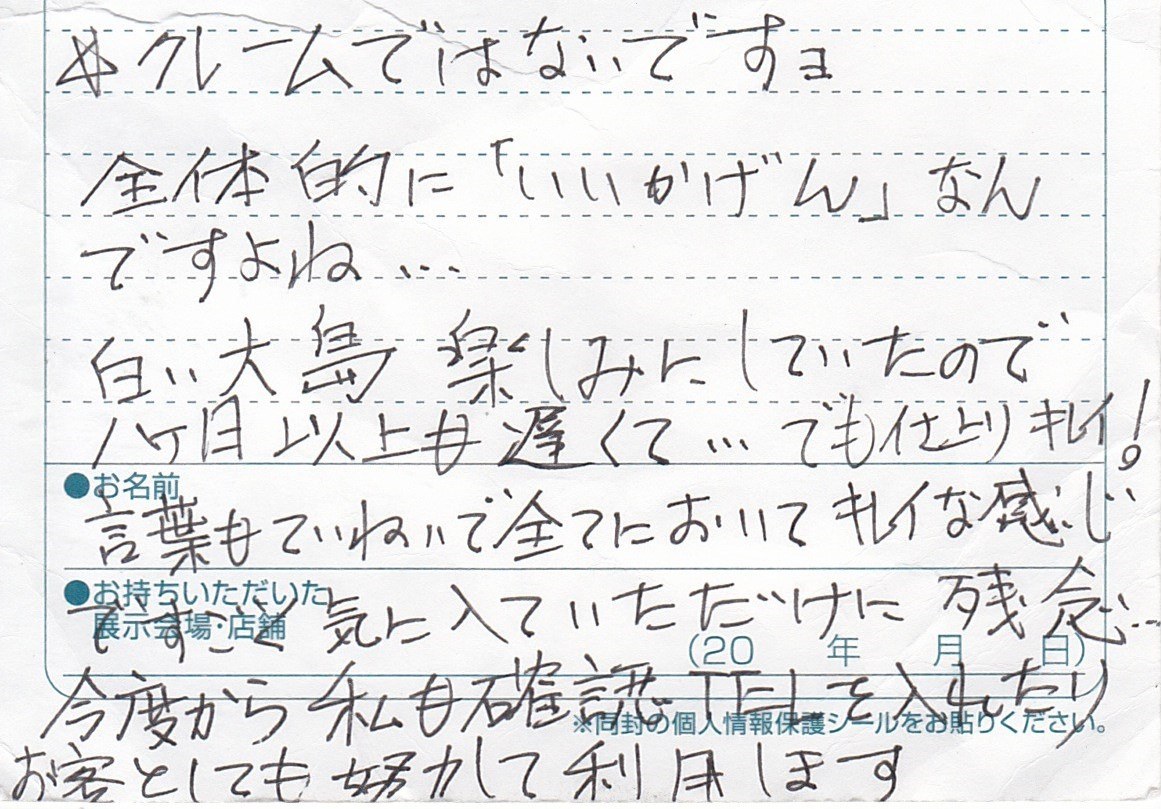 ☆クレームではないですョ
全体的に「いいかげん」なん
ですよね…
白い大島楽しみにしていたので
1ヶ月以上も遅くて…でも仕上りキレイ!
●お名前
言葉もていねいで全てにおいてキレイな感じ
●お持ちいただいた
展示会場・店舗
ですごく気に入ていただけに残念…
(20 年 月 日)
今度から私も確認TELを入れたり
※同封の個人情報保護シールをお貼りください。
お客としても努力して利用します